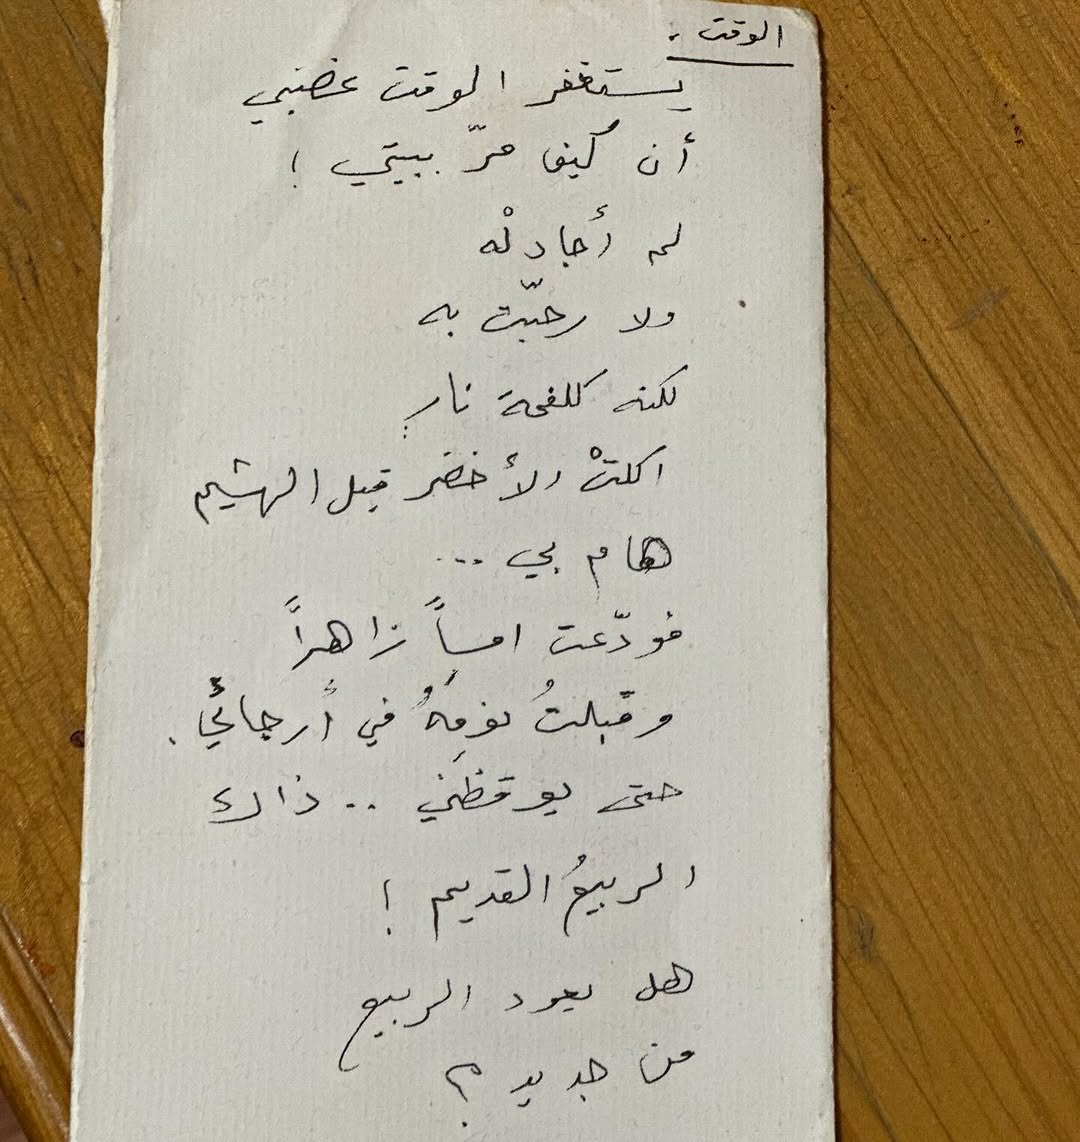 الوقت :
يستغفر الوقت غضبي
أن كيف مرّ ببيتي !
لم أجادلْه
ولا رحّبت به
لكنه كلفحة نار
اكلتْ الأخضر قبل الهشيم
هام بي ...
فودّعت امساً زاهراً
وقبلتُ نومَهُ في أرجائي .
حتى يوقظَني .. ذاك
الربيعُ القديم !
هل يعود الربيع
من جديد ؟